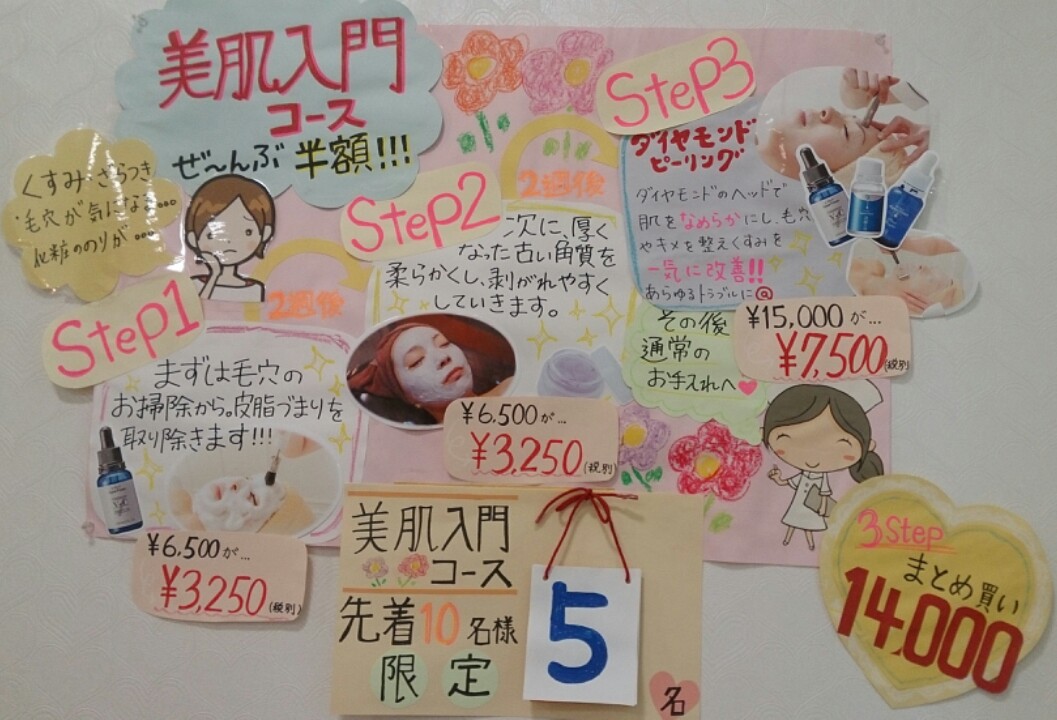 美肌入門
コース
ぜ〜んぶ 半額!!!
くすみ・ざらつき
毛穴が気になる…
化粧ののりが…
Step1
まずは毛穴の
お掃除から。皮脂づまりを
取り除きます!!!
¥6,500が…
¥3,250(税別)
2週後
Step2
次に、厚く
なった古い角質を
柔らかくし、剥がれやすく
していきます。
¥6,500が…
¥3,250(税別)
2週後
Step3
ダイヤモンド
ピーリング
ダイヤモンドのヘッドで
肌をなめらかにし、毛穴
やキメを整えくすみを
一気に改善!!
あらゆるトラブルに@
¥15,000が…
¥7,500(税別)
その後
通常の
お手入れへ
美肌入門
コース
先着10名様
限定
5
名
3Step
まとめ買い
14,000